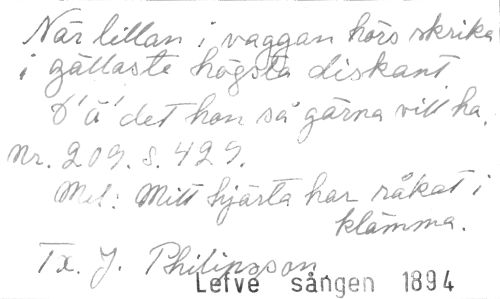 När lillan i vaggan hörs skrika
i gällaste högsta diskant
D'ä' det hon så gärna vill ha.
Nr. 209. s. 429.
Mel: Mitt hjärta har råkat i
klämma.
Tx. J. Philipsson.
Lefve sången 1894